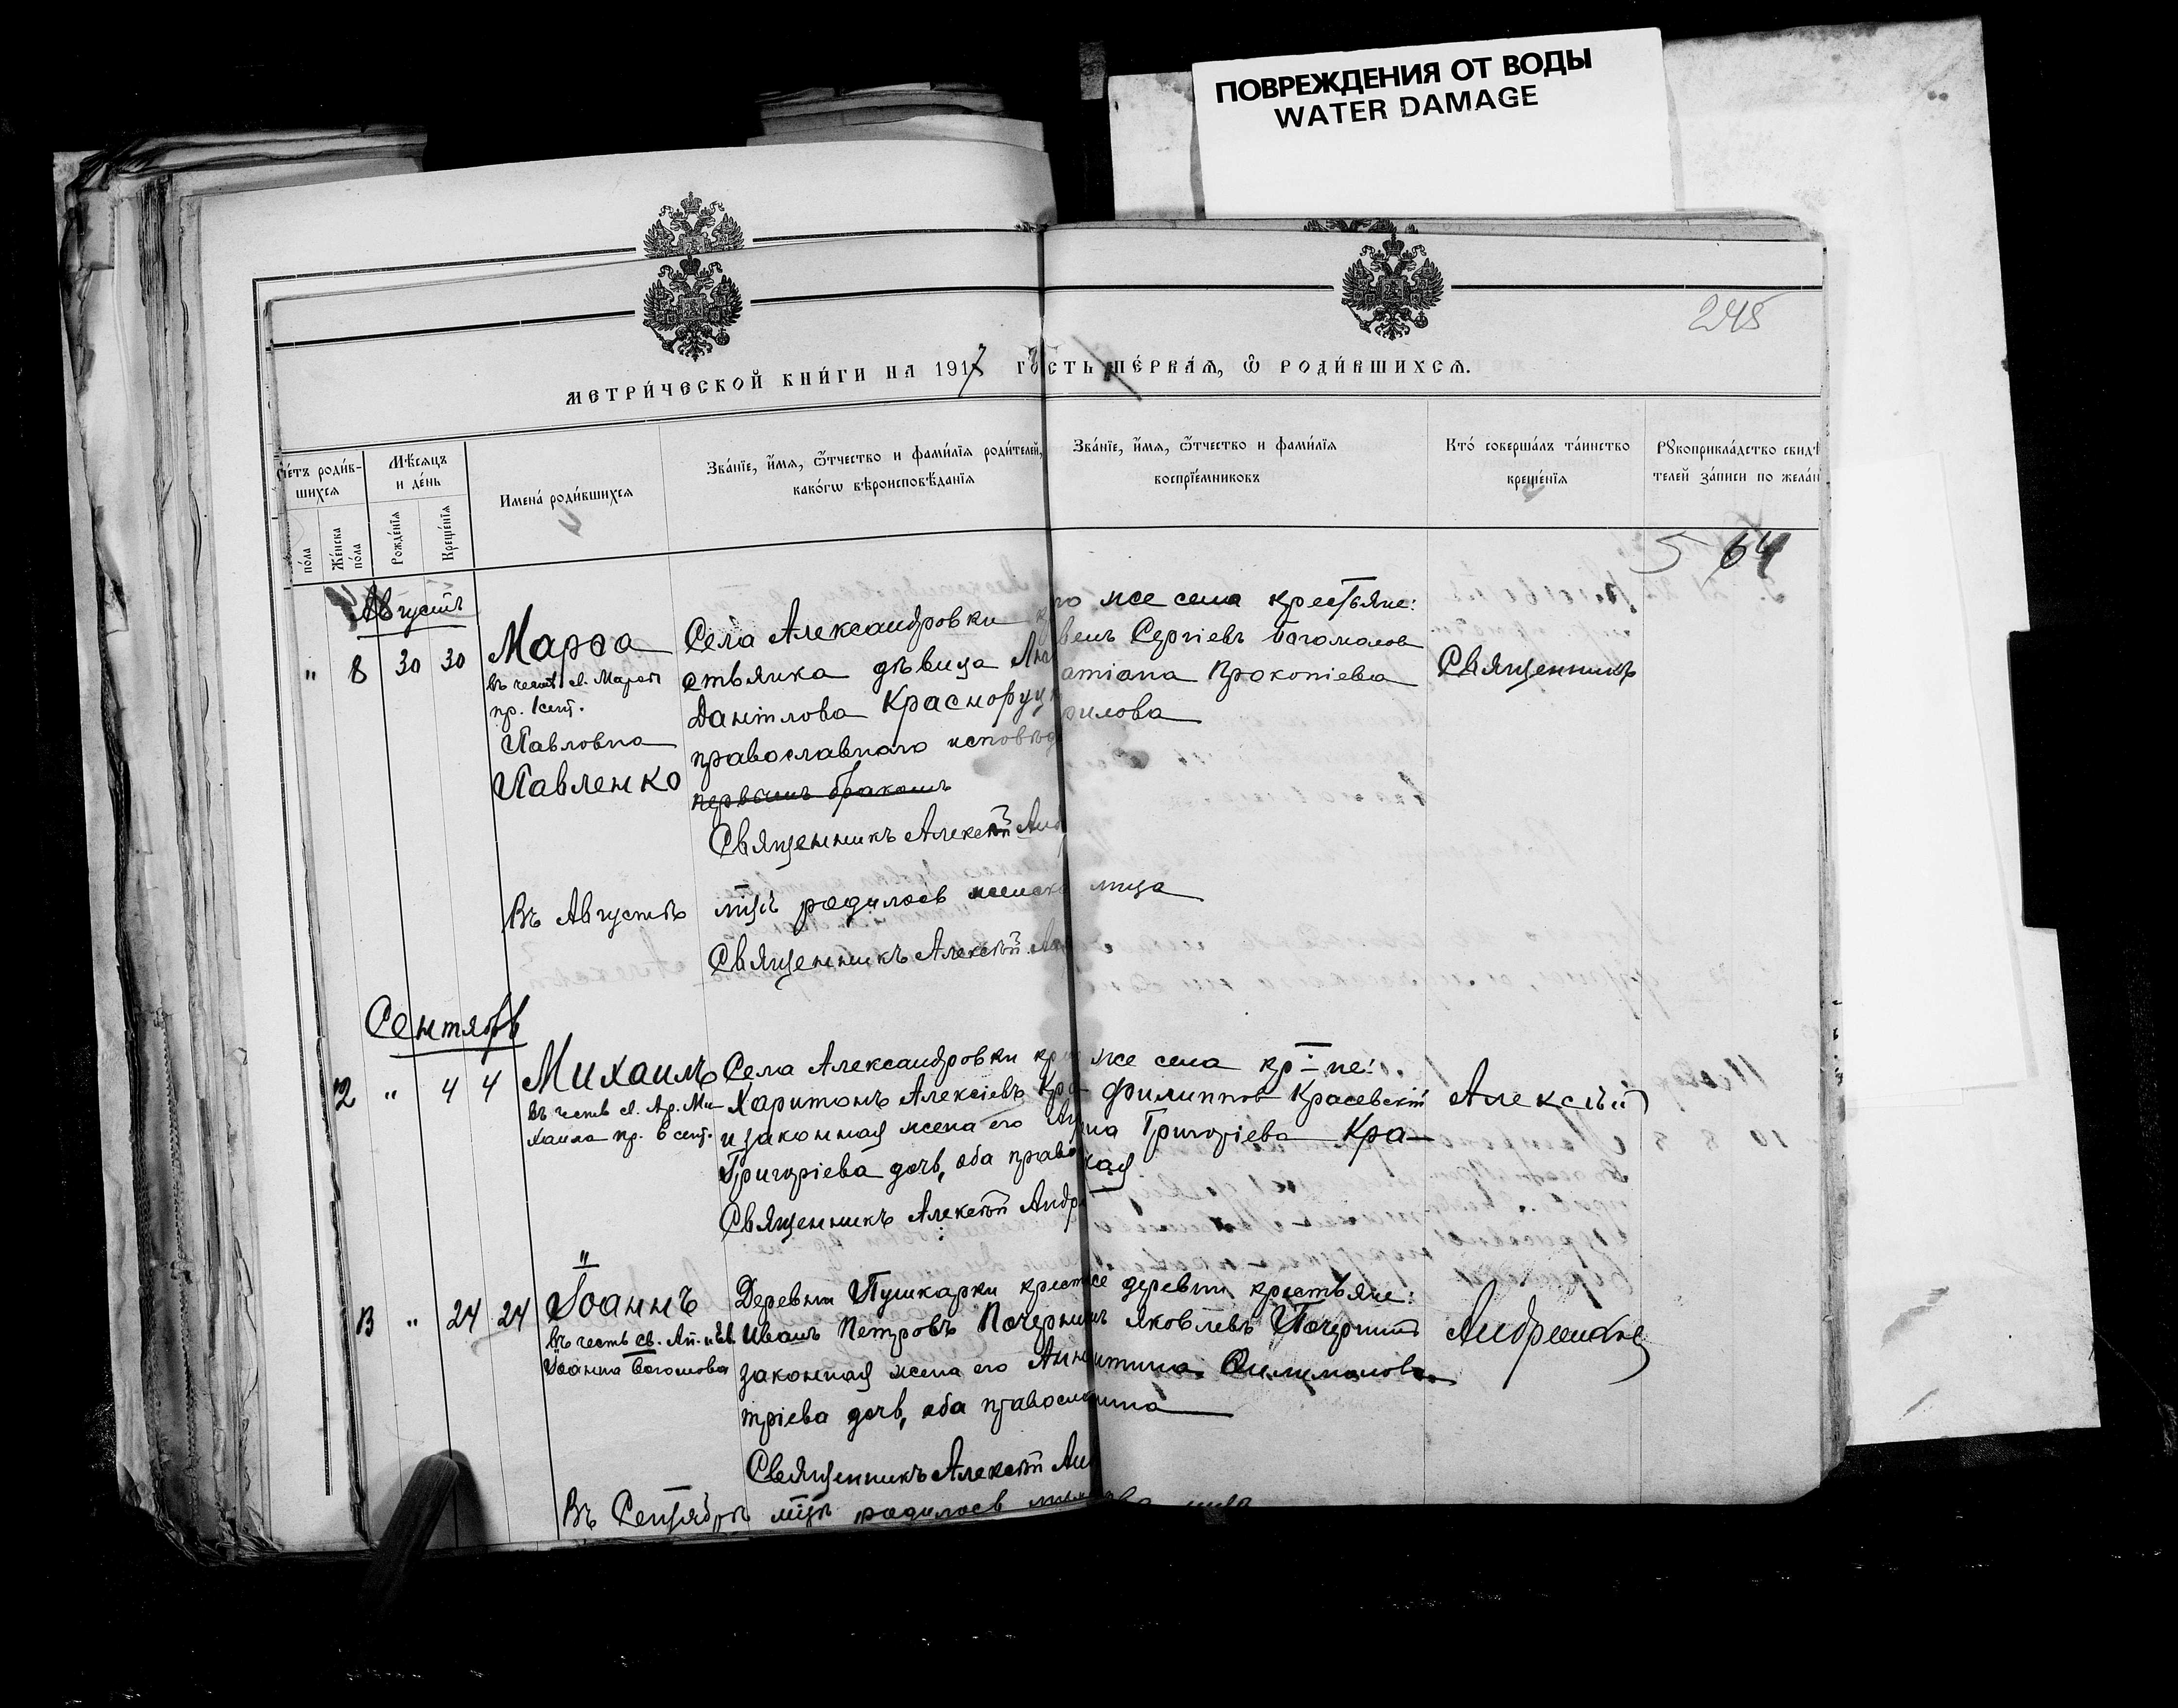 ПОВРЕЖДЕНИЯ ОТ ВОДЫ
WATER DAMAGE
245
МЕТРИ́ЧЕСКОЙ КНИ́ГИ НА 1917
СТЬ ПЕ́РВАѦ, Ѿ РОДИ́ВШИХСѦ.
Сче́тъ роди́в-
шихсѧ
по́ла
Же́нска
по́ла
Мѣ́сѧцъ
и де́нь
Рожде́нїѧ
Креще́нїѧ
Имена̀ роди́вшихсѧ
Зва́нїе, и҆́мѧ, ѻ҆́тчество и фами́лїѧ роди́телей,
како́гѡ вѣроисповѣ́данїѧ
Зва́нїе, и҆́мѧ, ѻ҆́тчество и фами́лїѧ
воспрїе́мниковъ
Кто́ соверша́лъ та́инство
креще́нїѧ
Рꙋкоприкла́дство свидѣ
телей за́писи по жела́н
64
Августъ
" 8 30 30
Марѳа
въ честь св. Марѳы
пр. 1 сент.
Павловна
Павленко
Села Александровки
стьянка дѣвица
Даніилова Красноруц
православнаго исповѣд
первымъ бракомъ
Священникъ Алексѣй Анд
го же села крестьяне:
велъ Сергіевъ Богомолов
атіана Прокопіева
рилова
Священникъ
Въ Августѣ мцѣ родилось женска лица
Священникъ Алексѣй Ан
Сентябрь
12 " 4 4
Михаилъ
въ честь св. Ар. Ми-
хаила пр. 6 сент.
Села Александровки кр
Харитонъ Алексіевъ Кра
и законная жена его
Григоріева дочь, оба право
Священникъ Алексѣй Андр
же села кр-не:
Филиппов Красевскій
на Григоріева Кра-
кая
Алексѣй
"
13 " 24 24
Іоаннъ
въ честь св. Ап. и Ев.
Іоанна Богослова
Деревни Пушкарки крест
Иванъ Петровъ Почерни
законная жена его Анн
тріева дочь, оба православ
Священникъ Алексѣй Ан
же деревни крестьяне:
Яковлевъ Почернинъ
Филимонова
Андреевъ
Въ Сентябрѣ мцѣ родилось лица